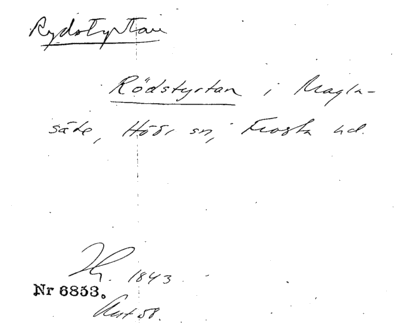 Rydstyrtan
Rödstyrtan i Magla-
säte, Höörs sn, Frosta hd.
1843.
Nr 6853.